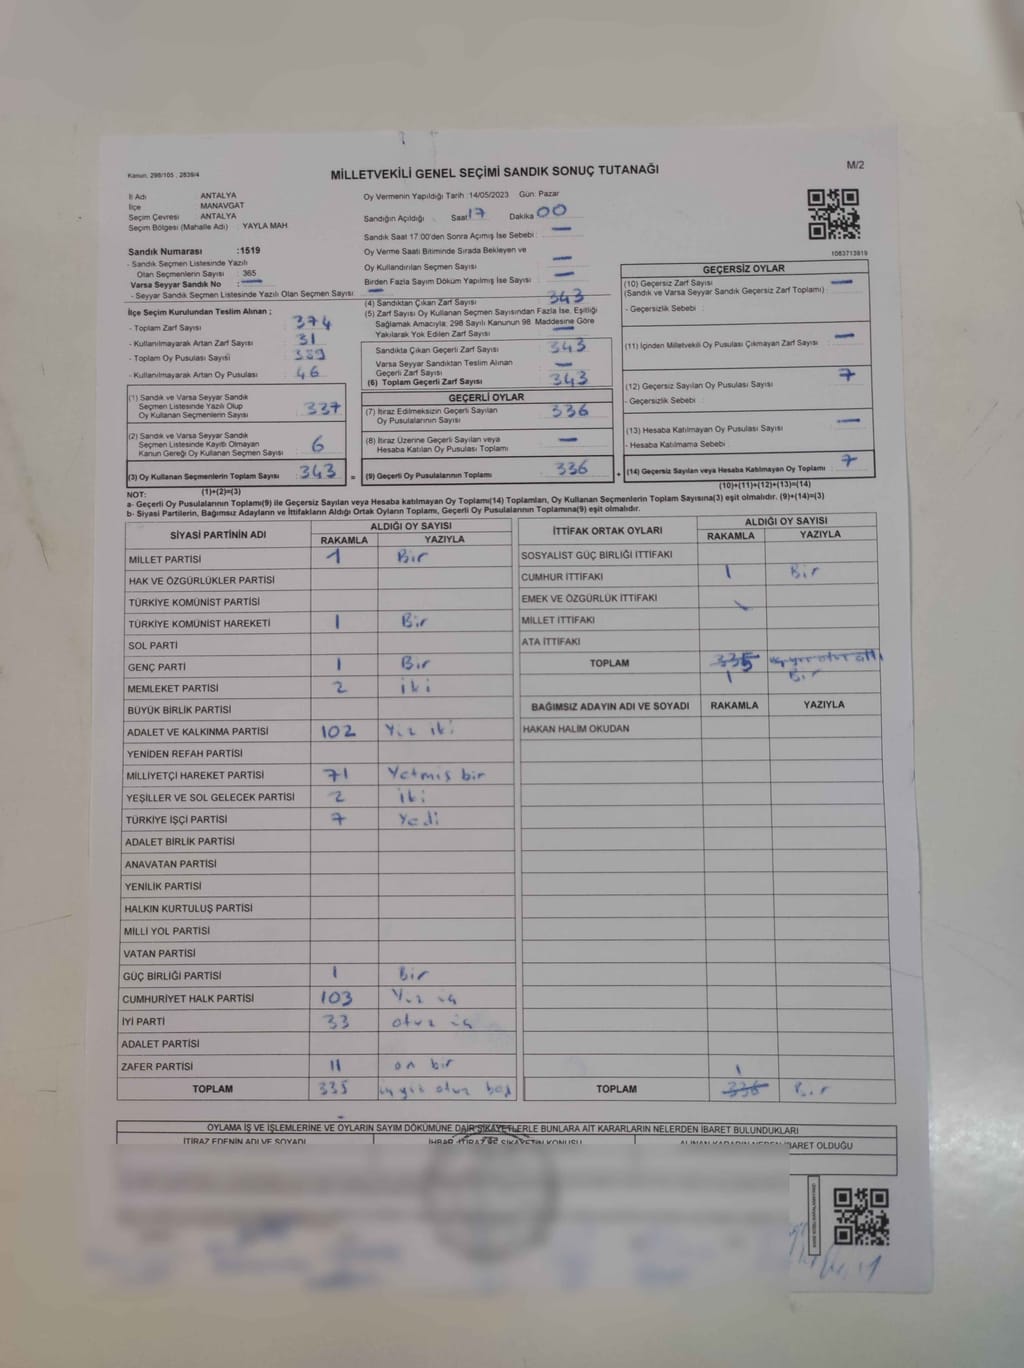 Kanun, 298/105 , 2839/4
MİLLETVEKİLİ GENEL SEÇİMİ SANDIK SONUÇ TUTANAĞI
M/2
İl Adı ANTALYA
İlçe MANAVGAT
Seçim Çevresi ANTALYA
Seçim Bölgesi (Mahalle Adı) : YAYLA MAH
Sandık Numarası :1519
- Sandık Seçmen Listesinde Yazılı
Olan Seçmenlerin Sayısı : 365
Varsa Seyyar Sandık No : —
- Seyyar Sandık Seçmen Listesinde Yazılı Olan Seçmen Sayısı : —
Oy Vermenin Yapıldığı Tarih :14/05/2023 Gün: Pazar
Sandığın Açıldığı Saat 17 Dakika 00
Sandık Saat 17:00'den Sonra Açımış İse Sebebi : —
Oy Verme Saati Bitiminde Sırada Bekleyen ve
Oy Kullandırılan Seçmen Sayısı : —
Birden Fazla Sayım Döküm Yapılmış İse Sayısı : —
1063713919
İlçe Seçim Kurulundan Teslim Alınan ;
- Toplam Zarf Sayısı : 374
- Kullanılmayarak Artan Zarf Sayısı : 31
- Toplam Oy Pusulası Sayısı : 389
- Kullanılmayarak Artan Oy Pusulası : 46
(1) Sandık ve Varsa Seyyar Sandık
Seçmen Listesinde Yazılı Olup
Oy Kullanan Seçmenlerin Sayısı : 337
(2) Sandık ve Varsa Seyyar Sandık
Seçmen Listesinde Kayıtlı Olmayan
Kanun Gereği Oy Kullanan Seçmen Sayısı : 6
(3) Oy Kullanan Seçmenlerin Toplam Sayısı : 343 =
(1)+(2)=(3)
(4) Sandıktan Çıkan Zarf Sayısı : 343
(5) Zarf Sayısı Oy Kullanan Seçmen Sayısından Fazla İse, Eşitliği
Sağlamak Amacıyla; 298 Sayılı Kanunun 98. Maddesine Göre
Yakılarak Yok Edilen Zarf Sayısı : —
Sandıkta Çıkan Geçerli Zarf Sayısı : 343
Varsa Seyyar Sandıktan Teslim Alınan
Geçerli Zarf Sayısı : —
(6) Toplam Geçerli Zarf Sayısı : 343
GEÇERLİ OYLAR
(7) İtiraz Edilmeksizin Geçerli Sayılan
Oy Pusulasının Sayısı : 336
(8) İtiraz Üzerine Geçerli Sayılan veya
Hesaba Katılan Oy Pusulası Toplamı : —
(9) Geçerli Oy Pusulalarının Toplamı : 336 +
GEÇERSİZ OYLAR
(10) Geçersiz Zarf Sayısı
(Sandık ve Varsa Seyyar Sandık Geçersiz Zarf Toplamı) : —
- Geçersizlik Sebebi :
(11) İçinden Milletvekili Oy Pusulası Çıkmayan Zarf Sayısı : —
(12) Geçersiz Sayılan Oy Pusulası Sayısı : 7
- Geçersizlik Sebebi :
(13) Hesaba Katılmayan Oy Pusulası Sayısı : —
- Hesaba Katılmama Sebebi :
(14) Geçersiz Sayılan veya Hesaba Katılmayan Oy Toplamı : 7
(10)+(11)+(12)+(13)=(14)
NOT:
a- Geçerli Oy Pusulalarının Toplamı(9) ile Geçersiz Sayılan veya Hesaba katılmayan Oy Toplamı(14) Toplamları, Oy Kullanan Seçmenlerin Toplam Sayısına(3) eşit olmalıdır. (9)+(14)=(3)
b- Siyasi Partilerin, Bağımsız Adayların ve İttifakların Aldığı Ortak Oyların Toplamı, Geçerli Oy Pusulalarının Toplamına(9) eşit olmalıdır.
SİYASİ PARTİNİN ADI
ALDIĞI OY SAYISI
RAKAMLA YAZIYLA
MİLLET PARTİSİ 1 Bir
HAK VE ÖZGÜRLÜKLER PARTİSİ
TÜRKİYE KOMÜNİST PARTİSİ
TÜRKİYE KOMÜNİST HAREKETİ 1 Bir
SOL PARTİ
GENÇ PARTİ 1 Bir
MEMLEKET PARTİSİ 2 iki
BÜYÜK BİRLİK PARTİSİ
ADALET VE KALKINMA PARTİSİ 102 Yüz iki
YENİDEN REFAH PARTİSİ
MİLLİYETÇİ HAREKET PARTİSİ 71 Yetmiş bir
YEŞİLLER VE SOL GELECEK PARTİSİ 2 iki
TÜRKİYE İŞÇİ PARTİSİ 7 Yedi
ADALET BİRLİK PARTİSİ
ANAVATAN PARTİSİ
YENİLİK PARTİSİ
HALKIN KURTULUŞ PARTİSİ
MİLLİ YOL PARTİSİ
VATAN PARTİSİ
GÜÇ BİRLİĞİ PARTİSİ 1 Bir
CUMHURİYET HALK PARTİSİ 103 Yüz üç
İYİ PARTİ 33 otuz üç
ADALET PARTİSİ
ZAFER PARTİSİ 11 on bir
TOPLAM 335 üçyüz otuz beş
İTTİFAK ORTAK OYLARI
ALDIĞI OY SAYISI
RAKAMLA YAZIYLA
SOSYALİST GÜÇ BİRLİĞİ İTTİFAKI
CUMHUR İTTİFAKI 1 Bir
EMEK VE ÖZGÜRLÜK İTTİFAKI
MİLLET İTTİFAKI
ATA İTTİFAKI
TOPLAM
1 Bir
BAĞIMSIZ ADAYIN ADI VE SOYADI RAKAMLA YAZIYLA
HAKAN HALİM OKUDAN
1
TOPLAM 336 Bir
OYLAMA İŞ VE İŞLEMLERİNE VE OYLARIN SAYIM DÖKÜMÜNE DAİR ŞİKAYETLERLE BUNLARA AİT KARARLARIN NELERDEN İBARET BULUNDUKLARI
İTİRAZ EDENİN ADI VE SOYADI